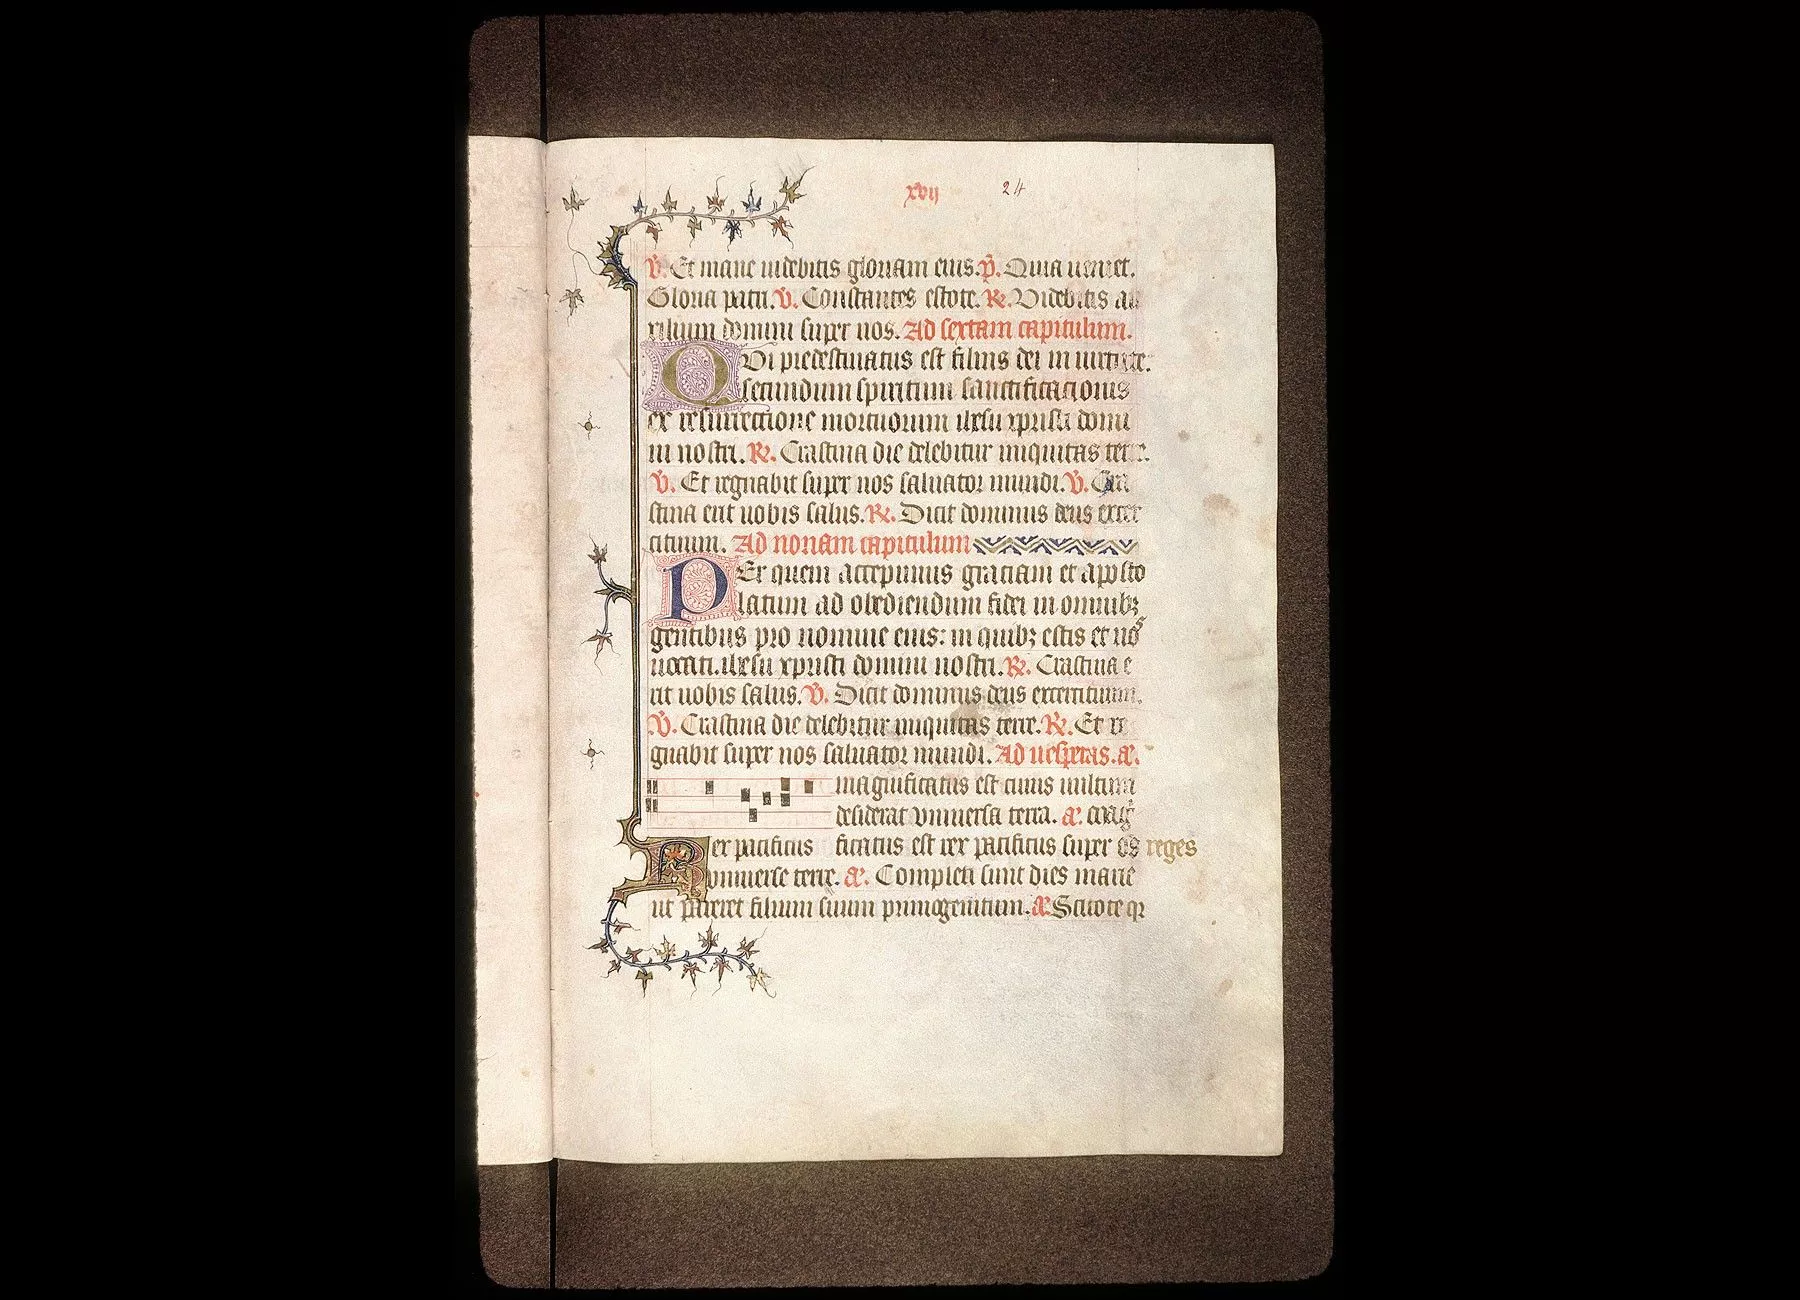 xvij 24
V. Et mane uidebitis gloriam eius. P. Quia ueniet.
Gloria patri. V. Constantes estote. R. Videbitis au
xilium domini super uos. Ad sextam capitulum.
QVi predestinatus est filius dei in uirtute.
secundum spiritum sanctificationis
ex resurrectione mortuorum ihesu xpristi domi
ni nostri. R. Crastina die delebitur iniquitas terre.
V. Et regnabit super nos saluator mundi. V. Cra
stina erit uobis salus. R. Dicit dominus deus exer
cituum. Ad nonam capitulum
PEr quem accepimus graciam et aposto
latum ad obediendum fidei in omnibꝫ
gentibus pro nomine eius: in quibꝫ estis et uos
uocati. ihesu xpristi domini nostri. R. Crastina e
rit uobis salus. V. Dicit dominus deus exercituum.
V. Crastina die delebitur iniquitas terre. R. Et re
gnabit super nos saluator mundi. Ad uesperas. a.
magnificatus est cuius uultum
desiderat vniuersa terra. a. magni
Rex pacificus ficatus est rex pacificus super os reges
vniuerse terre. a. Completi sunt dies marie
ut pareret filium suum primogenitum. a. Scitote q